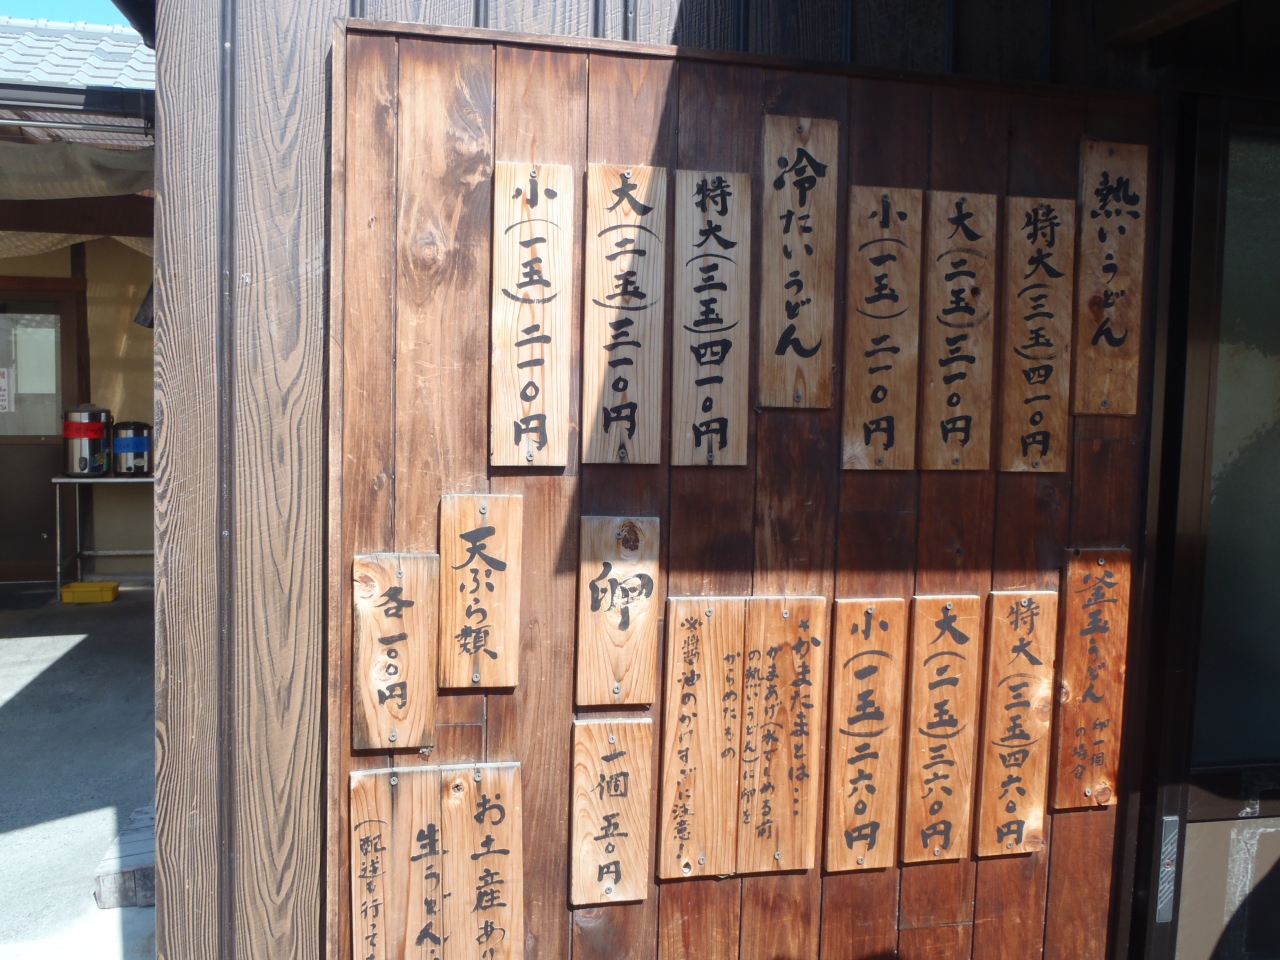 熱いうどん
特大(三玉)四一〇円
大(二玉)三一〇円
小(一玉)二一〇円
冷たいうどん
特大(三玉)四一〇円
大(二玉)三一〇円
小(一玉)二一〇円
釜玉うどん
卵一個
の場合
特大(三玉)四六〇円
大(二玉)三六〇円
小(一玉)二六〇円
※かまたまとは…
かまあげ(水でしめる前
の熱いうどん)に卵を
からめたもの
※醤油のかけすぎに注意!
卵
一個 五〇円
天ぷら類
各一〇〇円
お土産あり
生うどん
(配送も行って